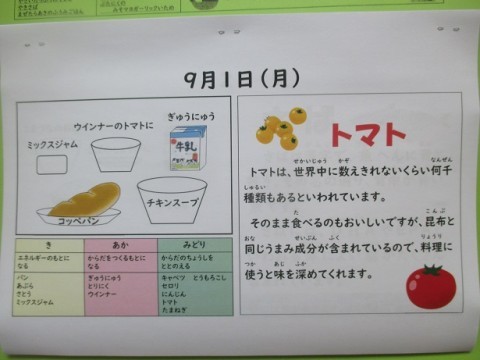 9月1日(月)
ウインナーのトマトに
ぎゅうにゅう
ミックスジャム
牛乳
コッペパン
チキンスープ
き
あか
みどり
エネルギーのもとに
なる
からだをつくるもとに
なる
からだのちょうしを
ととのえる
パン
あぶら
さとう
ミックスジャム
ぎゅうにゅう
とりにく
ウインナー
キャベツ とうもろこし
セロリ
にんじん
トマト
たまねぎ
トマト
せかいじゅう かぞ なんぜん
トマトは、世界中に数えきれないくらい何千
しゅるい
種類もあるといわれています。
た こんぶ
そのまま食べるのもおいしいですが、昆布と
おな せいぶん ふく りょうり
同じうまみ成分が含まれているので、料理に
つか あじ ふか
使うと味を深めてくれます。